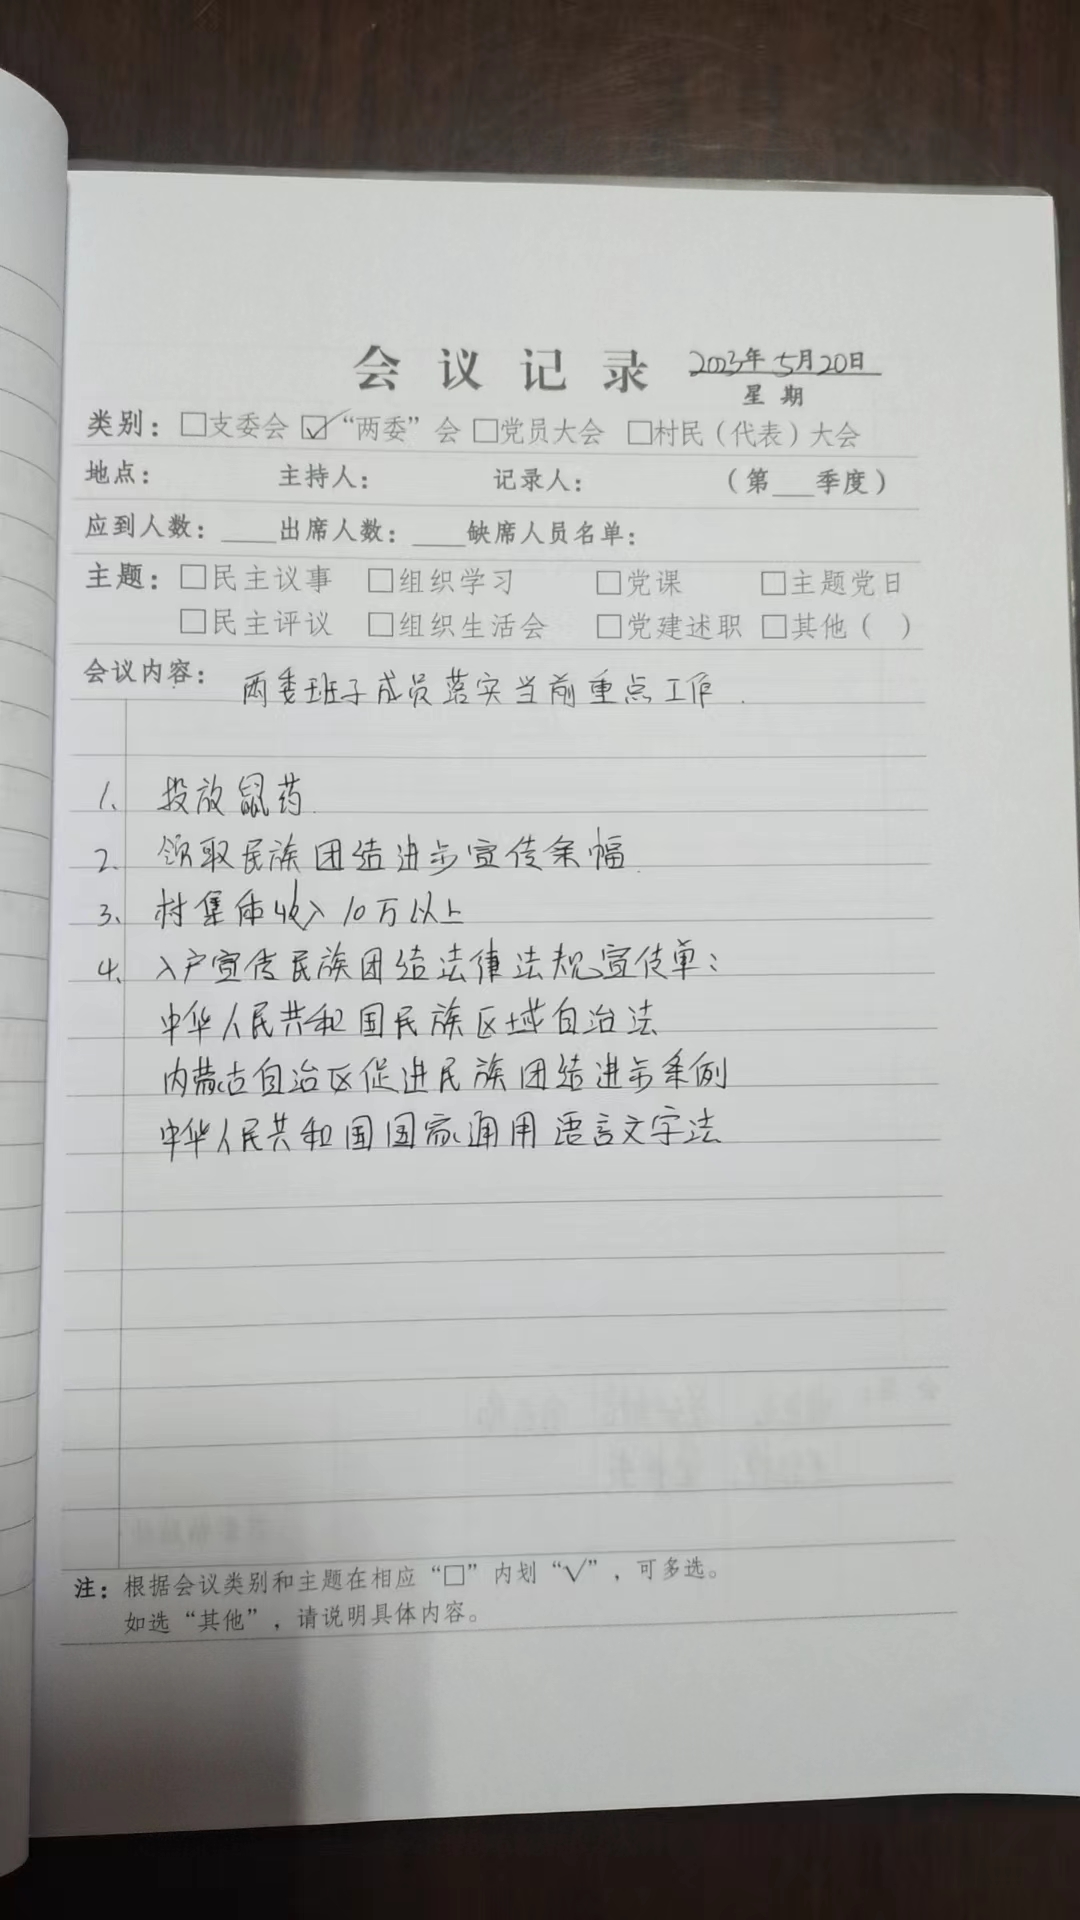 会议记录 2023年5月20日
星期
类别：□支委会 ☑“两委”会 □党员大会 □村民（代表）大会
地点： 主持人： 记录人： （第___季度）
应到人数：____出席人数：____缺席人员名单：
主题：□民主议事 □组织学习 □党课 □主题党日
□民主评议 □组织生活会 □党建述职 □其他（ ）
会议内容：两委班子成员落实当前重点工作.
1、投放鼠药.
2、领取民族团结进步宣传条幅.
3、村集体收入10万以上
4、入户宣传民族团结法律法规宣传单：
中华人民共和国民族区域自治法
内蒙古自治区促进民族团结进步条例
中华人民共和国国家通用语言文字法
注：根据会议类别和主题在相应“□”内划“√”，可多选。
如选“其他”，请说明具体内容。